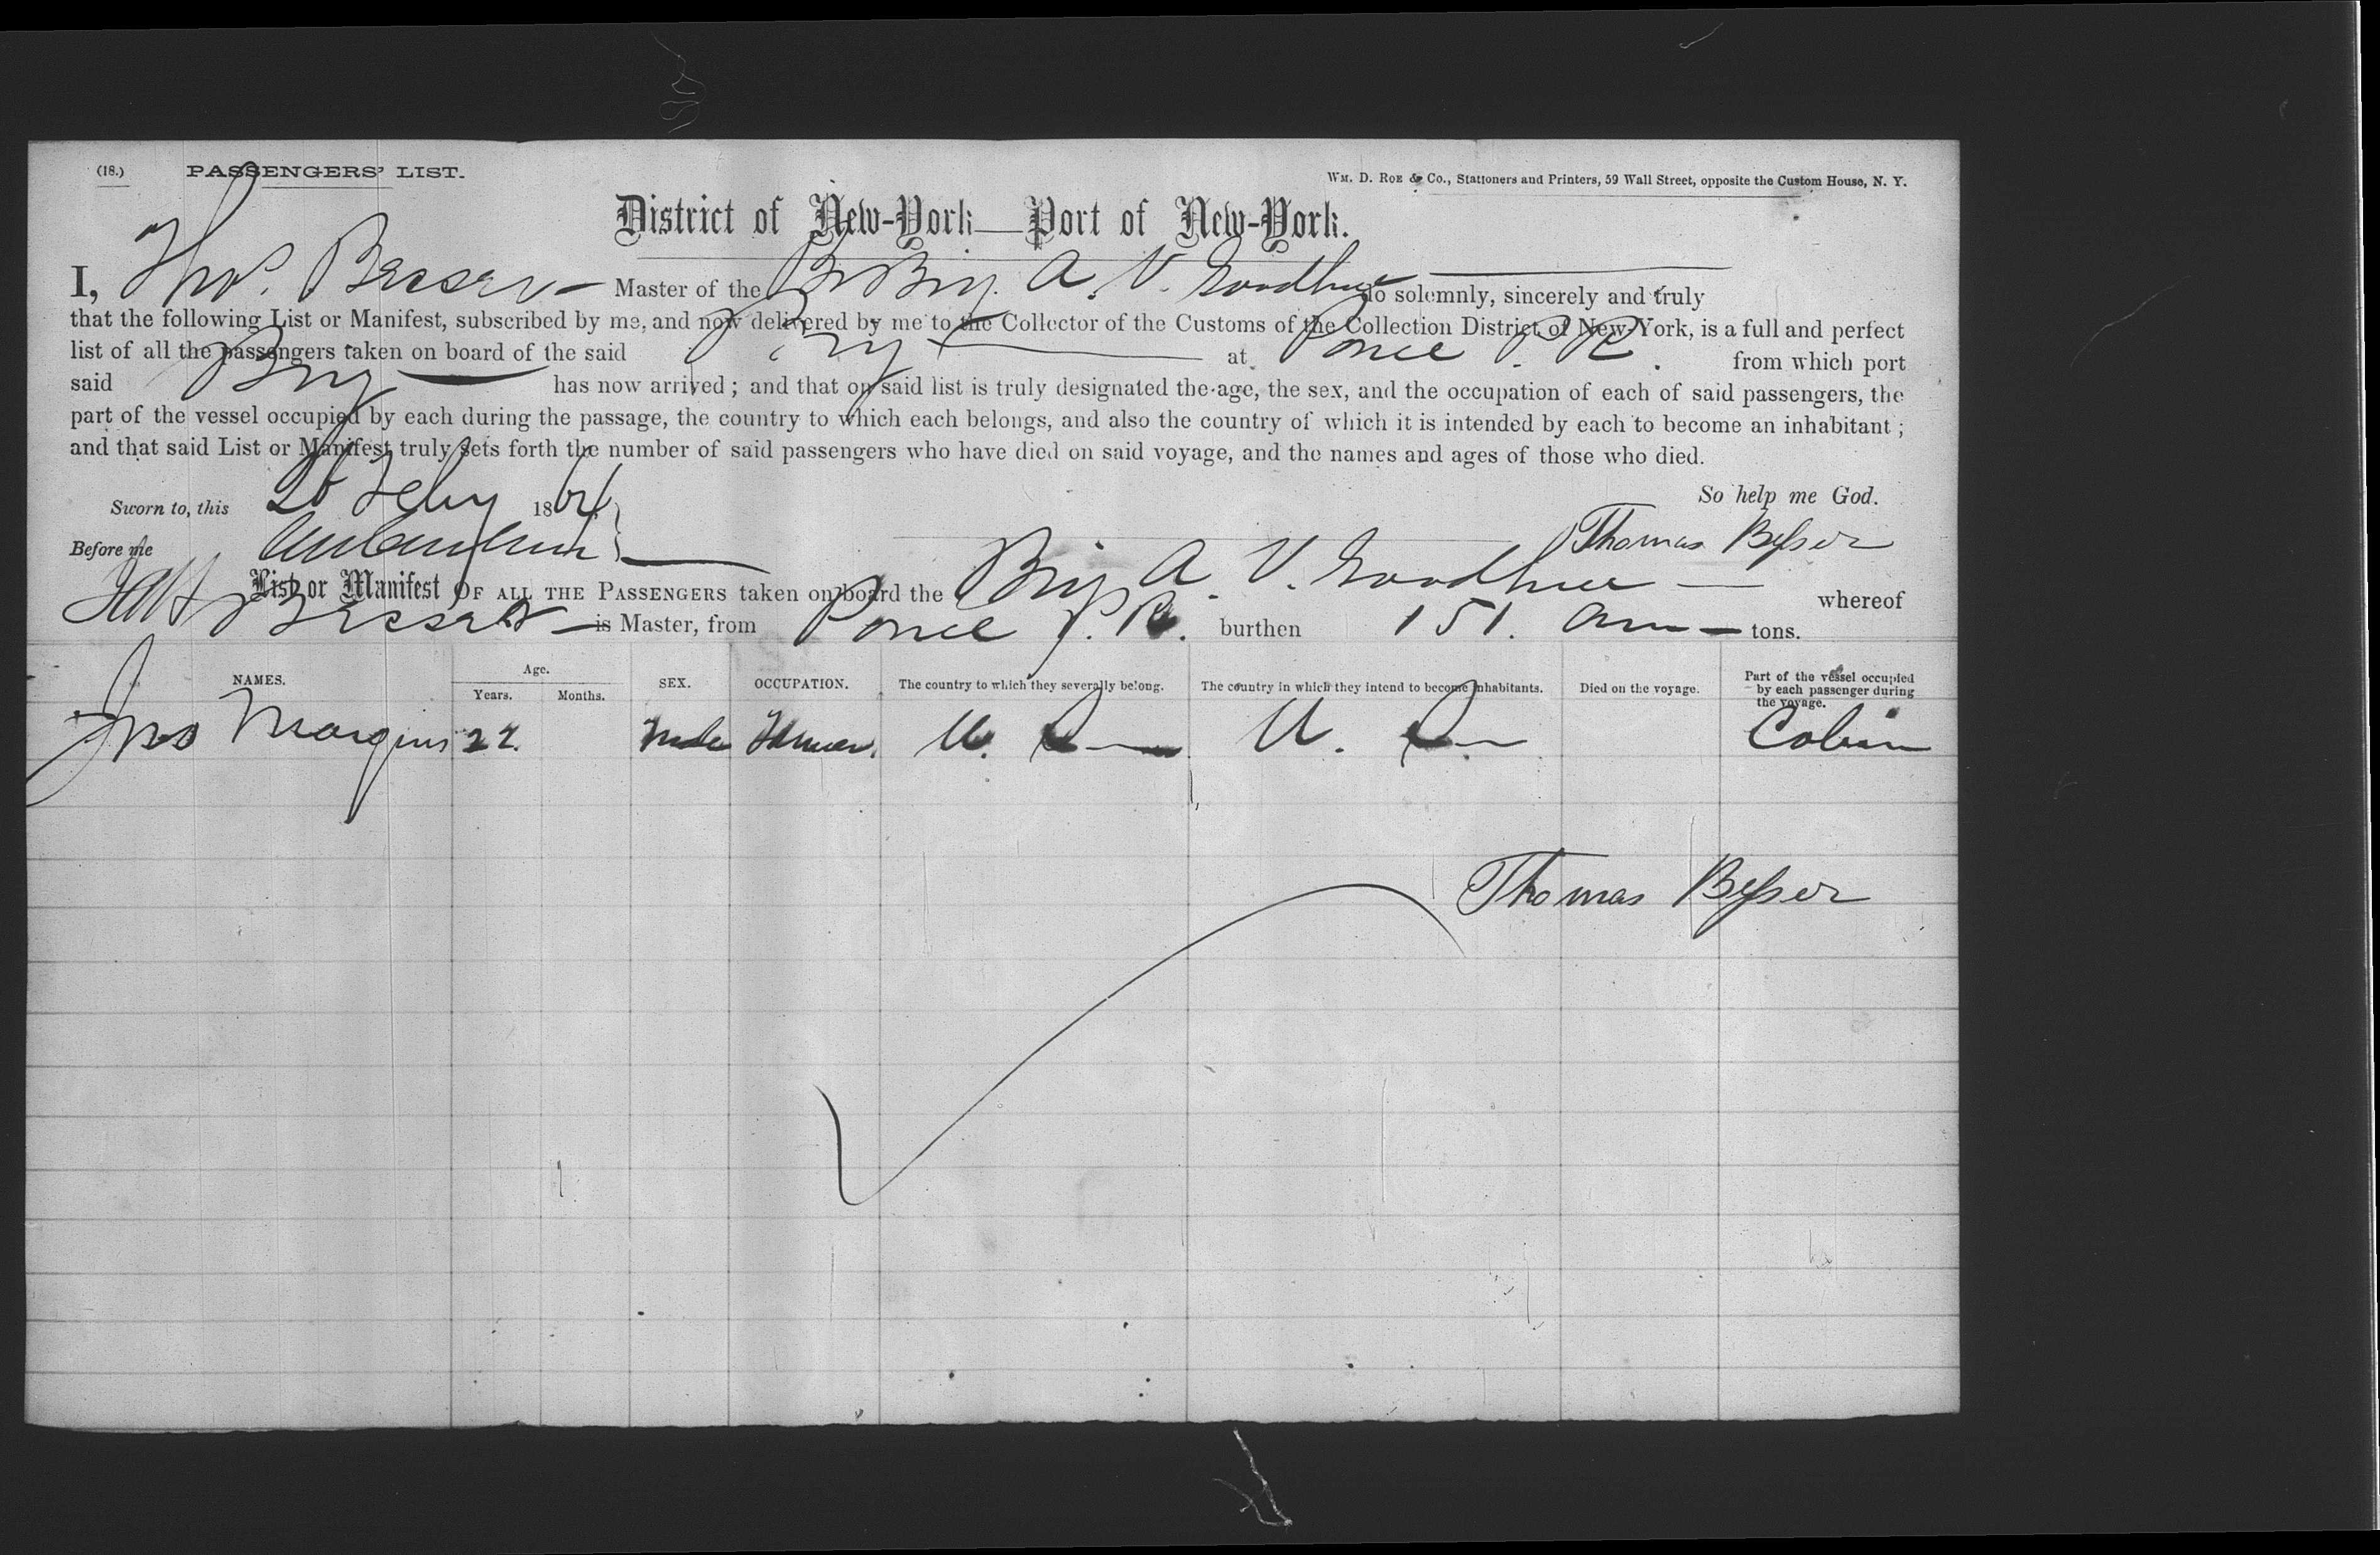 (18.) PASSENGERS' LIST.
WM. D. ROE & CO., Stationers and Printers, 59 Wall Street, opposite the Custom House, N. Y.
District of New-York—Port of New-York.
I, Thos. Besser Master of the Br Brig. A. V. Goodhue do solemnly, sincerely and truly
that the following List or Manifest, subscribed by me, and now delivered by me to the Collector of the Customs of the Collection District of New-York, is a full and perfect
list of all the passengers taken on board of the said Brig at Ponce P. R. from which port
said Brig has now arrived; and that on said list is truly designated the age, the sex, and the occupation of each of said passengers, the
part of the vessel occupied by each during the passage, the country to which each belongs, and also the country of which it is intended by each to become an inhabitant;
and that said List or Manifest truly sets forth the number of said passengers who have died on said voyage, and the names and ages of those who died.
So help me God.
Sworn to, this 26 Feby 1864
Thomas Besser
Before me
List or Manifest OF ALL THE PASSENGERS taken on board the Brig A. V. Goodhue whereof
Besser is Master, from Ponce P. R. burthen 151. tons.
NAMES. Age. Years. Months. SEX. OCCUPATION. The country to which they severally belong. The country in which they intend to become inhabitants. Died on the voyage. Part of the vessel occupied by each passenger during the voyage.
Jno Margins 22. Male U. S. U. S. Cabin
Thomas Besser